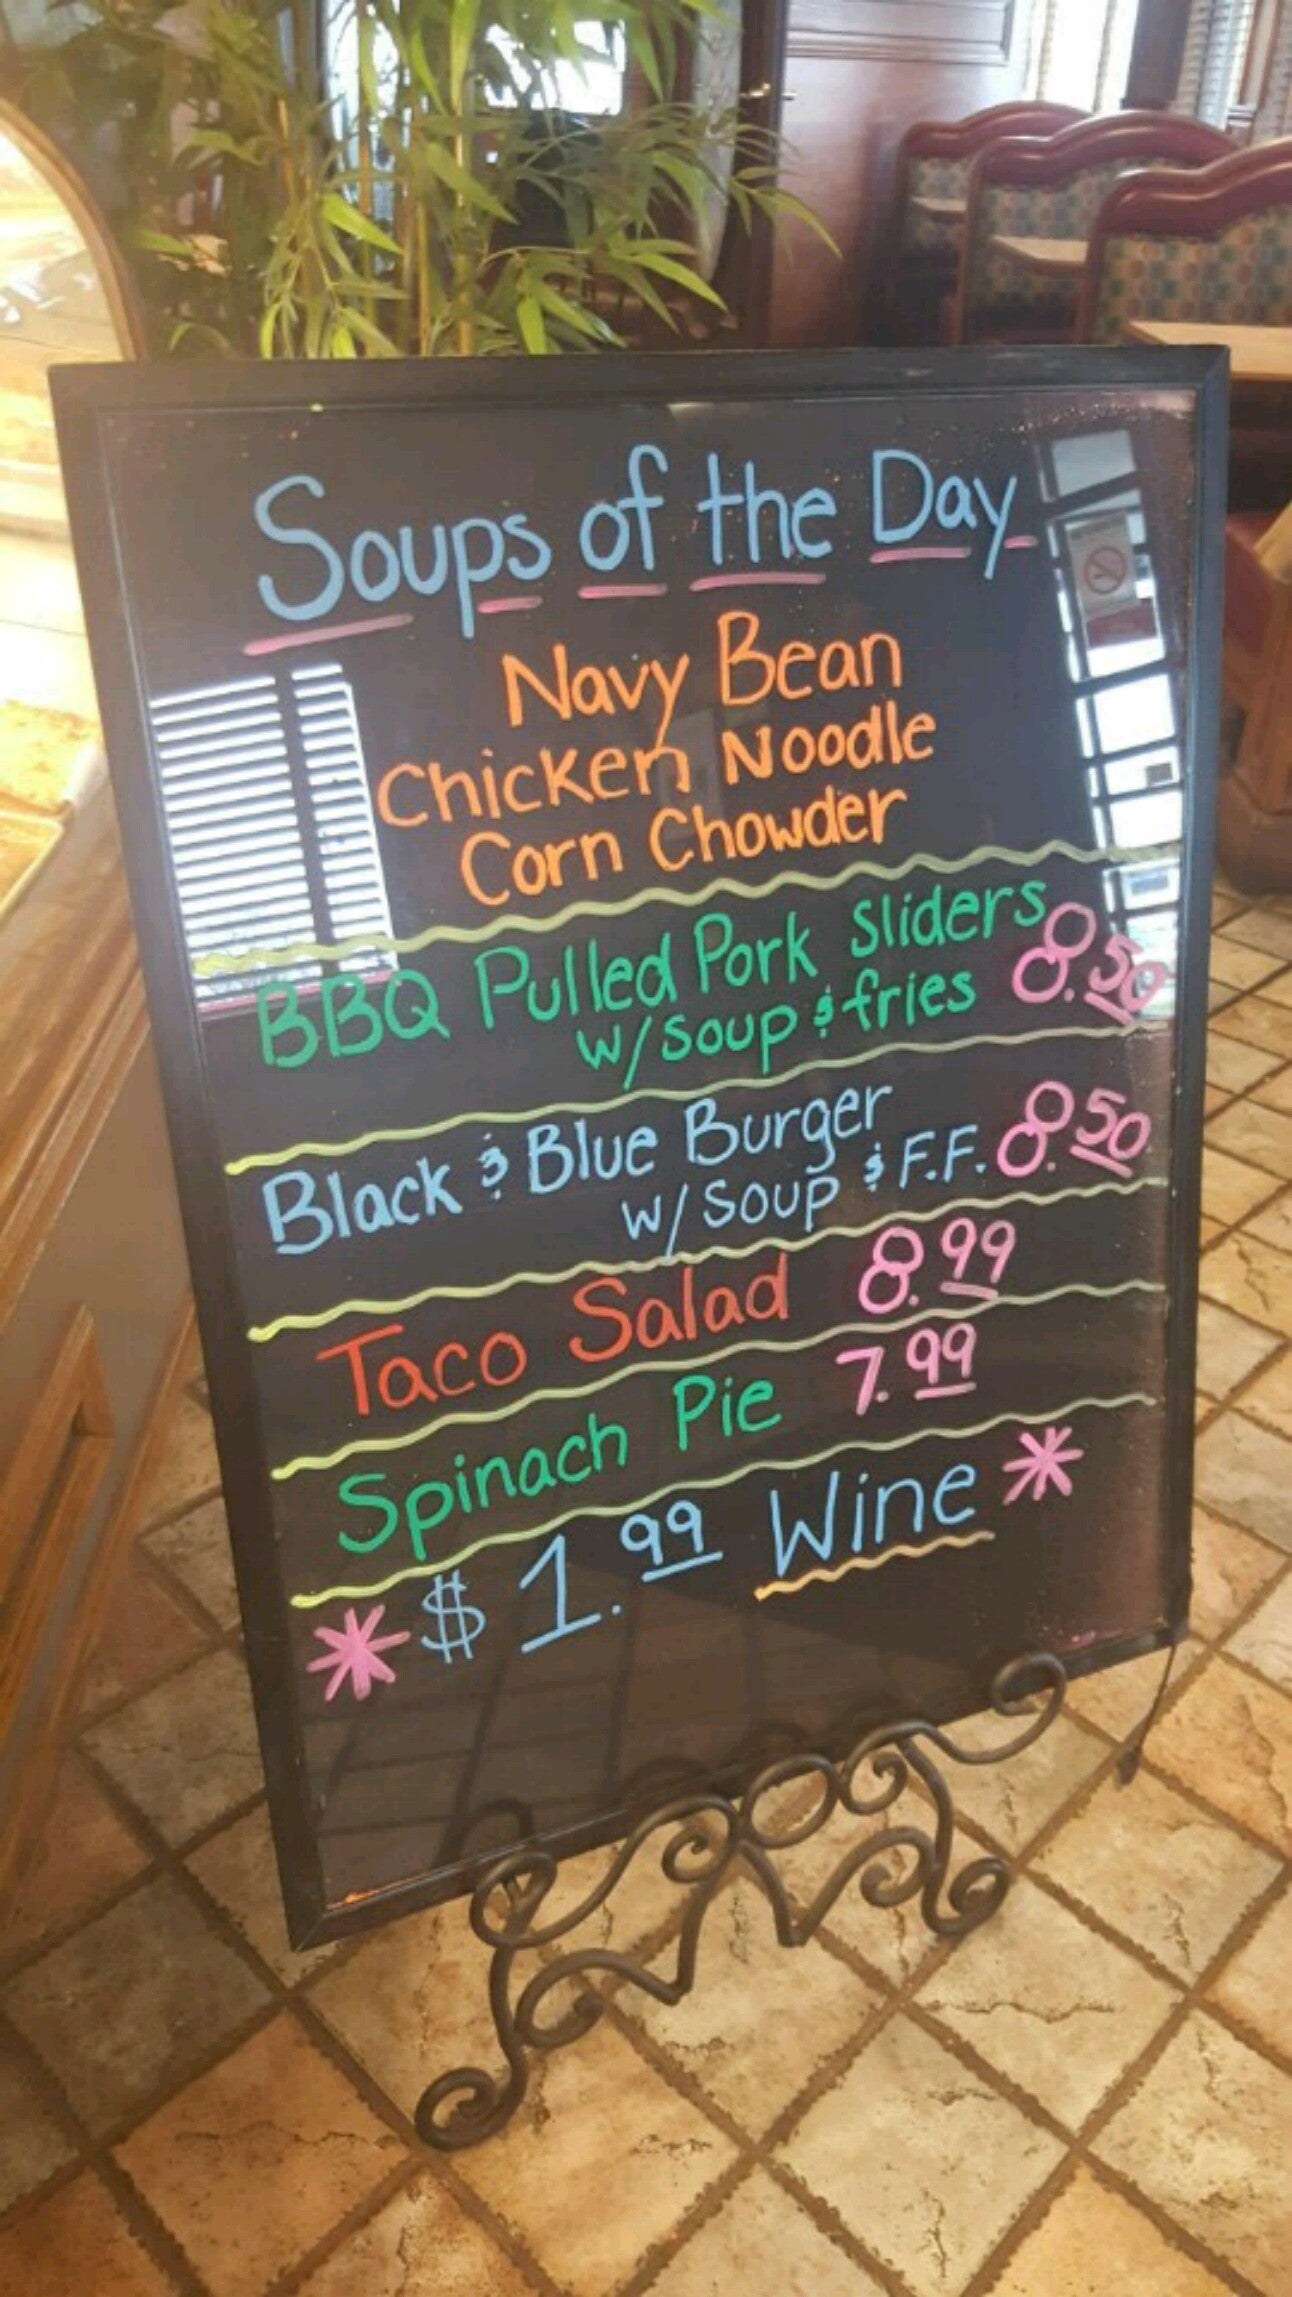 Soups of the Day
Navy Bean
Chicken Noodle
Corn Chowder
BBQ Pulled Pork Sliders
w/soup & fries 8.50
Black & Blue Burger
w/soup & F.F. 8.50
Taco Salad 8.99
Spinach Pie 7.99
* $1.99 Wine *